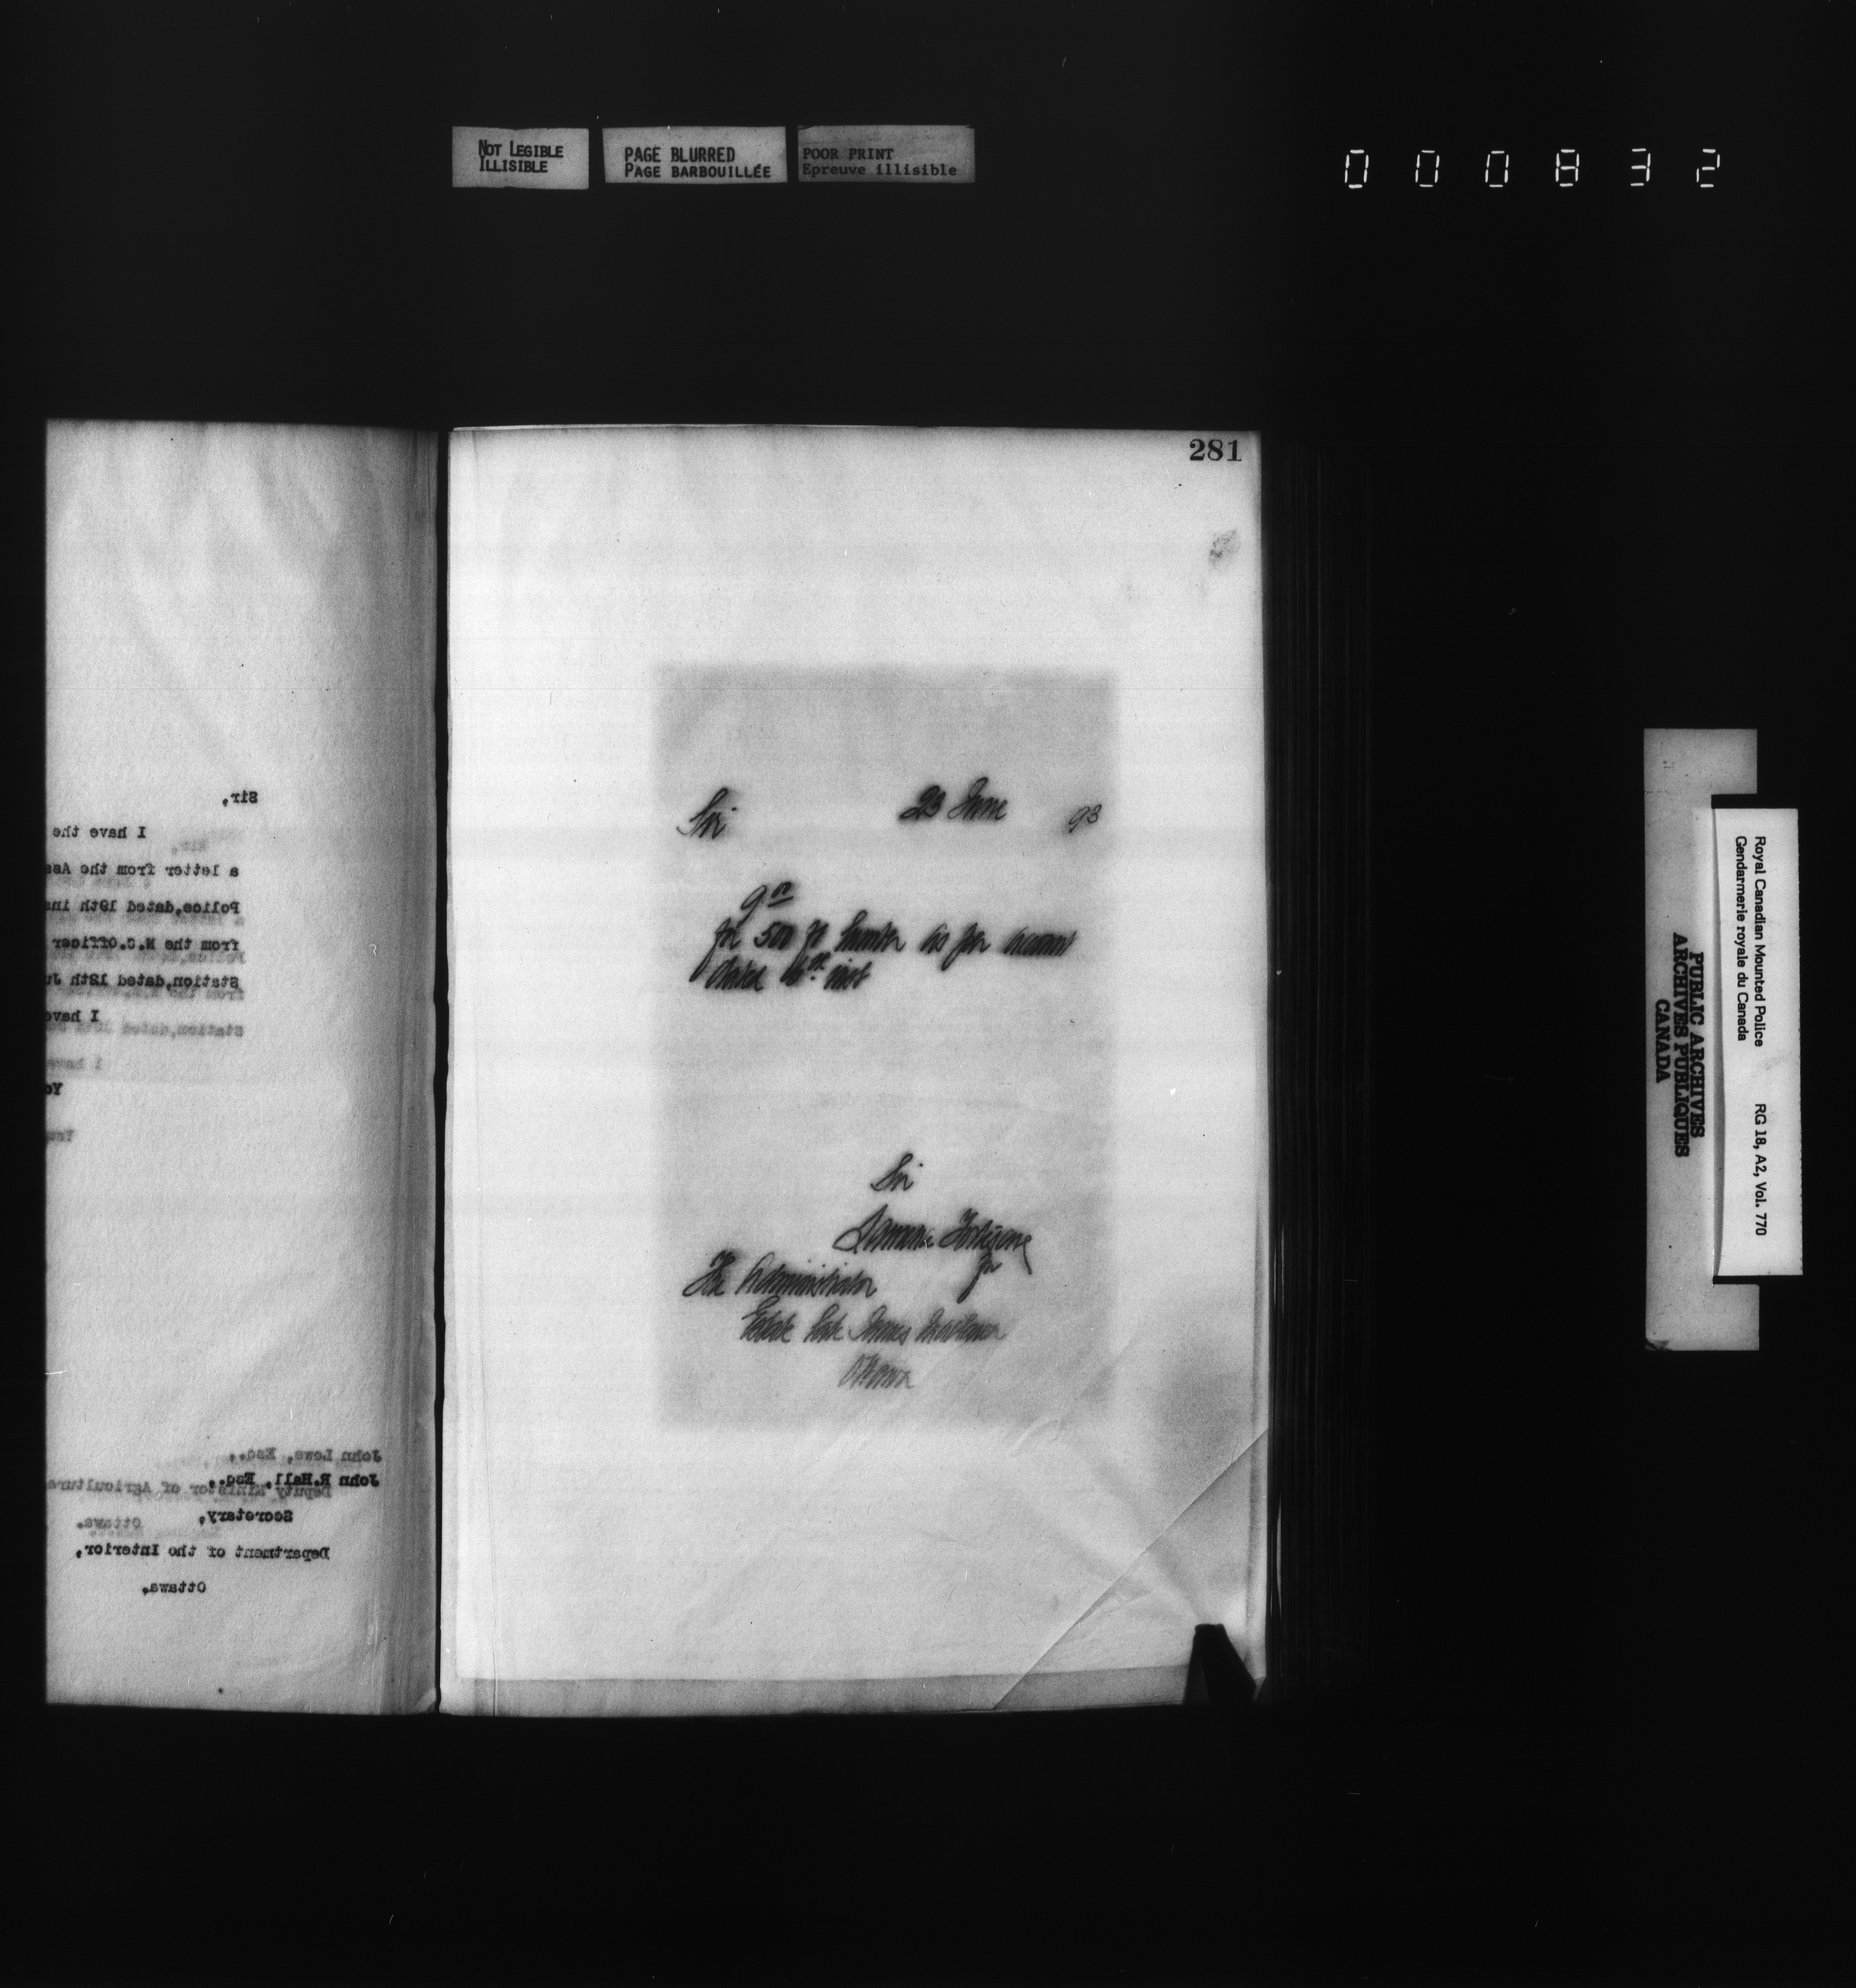 NOT LEGIBLE
ILLISIBLE
PAGE BLURRED
PAGE BARBOUILLÉE
POOR PRINT
Epreuve illisible
000832
281
Sir,
I have the
a letter from the Ass
Police,dated 19th ins
from the N.C.Officer
Station,dated 12th Ju
I have
Yo
John Lowe, Esq.,
John R.Hall, Esq.,
Deputy Minister of Agriculture
Secretary,
Ottawa.
Department of the Interior,
Ottawa.
Sir 23 June 93
9
for 500 ft lumber as per account
dated 6th inst
Sir
The Administrator
Estate late James Maclaren
Ottawa
Royal Canadian Mounted Police RG 18, A2, Vol. 770
Gendarmerie royale du Canada
PUBLIC ARCHIVES
ARCHIVES PUBLIQUES
CANADA